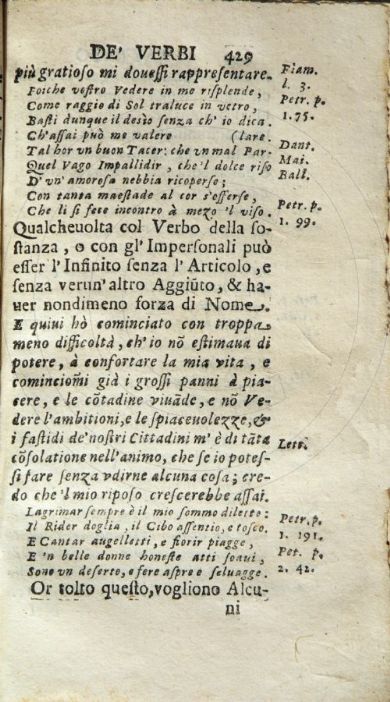 DE' VERBI 429
più gratioso mi douessi rappresentare. Fiam.
l. 3.
Poiche vostro Vedere in me risplende,
Come raggio di Sol traluce in vetro, Petr. p.
Basti dunque il desio senza ch' io dica. 1. 75.
Ch'assai può me valere (lare.
Tal hor vn buon Tacer: che vn mal Par- Dant. Mai.
Quel Vago Impallidir, che 'l dolce riso Ball.
D' vn' amorosa nebbia ricoperse;
Con tanta maestade al cor s'offerse,
Che li si fece incontro à mezo 'l viso. Petr. p.
1. 99.
Qualcheuolta col Verbo della so-
stanza, o con gl' Impersonali può
esser l' Infinito senza l' Articolo, e
senza verun' altro Aggiũto, & ha-
uer nondimeno forza di Nome.
E quiui hò cominciato con troppa
meno difficoltà, ch' io nõ estimaua di
potere, à confortare la mia vita, e
cominciomi già i grossi panni à pia-
cere, e le cõtadine viuãde, e nõ Ve-
dere l'ambitioni, e le spiaceuolezze, &
i fastidi de' nostri Cittadini m' è di tãta Lett.
cõsolatione nell'animo, che se io potes-
si fare senza vdirne alcuna cosa; cre-
do che 'l mio riposo crescerebbe assai.
Lagrimar sempre è il mio sommo diletto:
Il Rider doglia, il Cibo assentio, e tosco. Petr. p.
E Cantar augelletti, e fiorir piagge, 1. 191.
E 'n belle donne honeste atti soaui, Pet. p.
Sono vn deserto, e fere aspre e seluagge. 2. 42.
Or tolto questo, vogliono Alcu-
ni